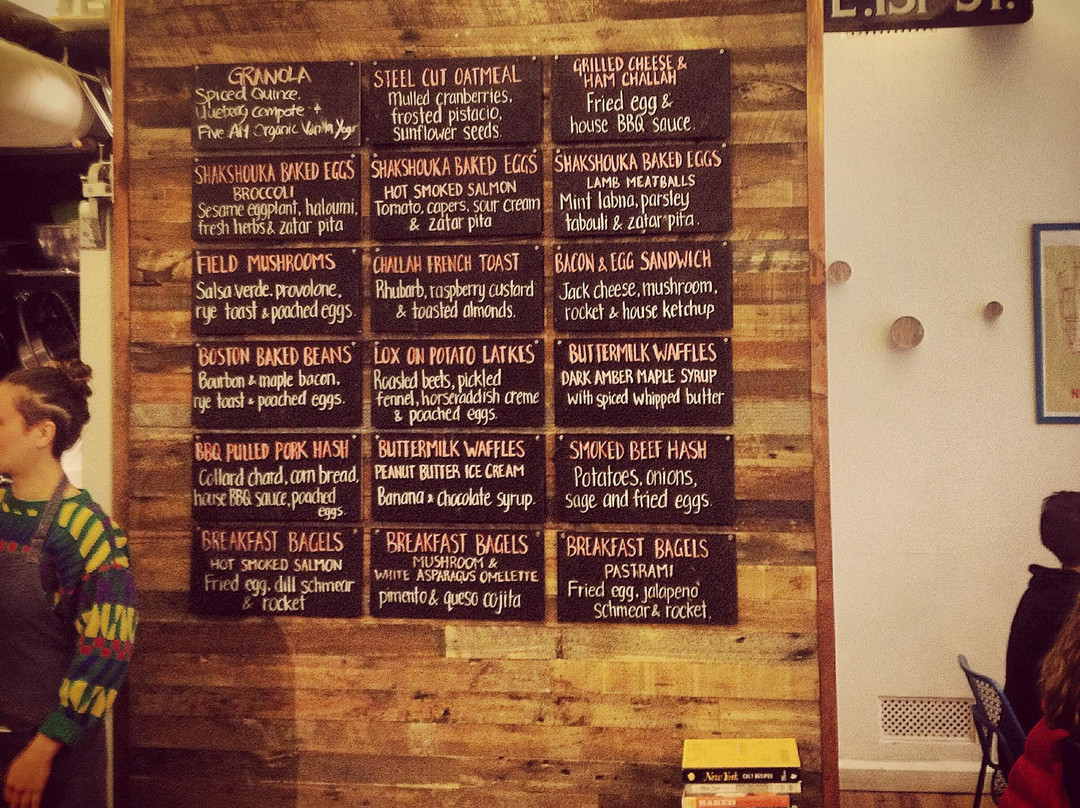 E. 1ST ST.
GRANOLA
Spiced Quince,
Blueberry compote +
Five AM Organic Vanilla Yogr
STEEL CUT OATMEAL
Mulled cranberries,
frosted pistacio,
sunflower seeds.
GRILLED CHEESE &
HAM CHALLAH
Fried egg &
house BBQ sauce.
SHAKSHOUKA BAKED EGGS
BROCCOLI
Sesame eggplant, haloumi,
fresh herbs & zatar pita
SHAKSHOUKA BAKED EGGS
HOT SMOKED SALMON
Tomato, capers, sour cream
& zatar pita
SHAKSHOUKA BAKED EGGS
LAMB MEATBALLS
Mint labna, parsley
tabouli & zatar pita.
FIELD MUSHROOMS
Salsa verde, provolone,
rye toast & poached eggs.
CHALLAH FRENCH TOAST
Rhubarb, raspberry custard
& toasted almonds.
BACON & EGG SANDWICH
Jack cheese, mushroom,
rocket & house ketchup
BOSTON BAKED BEANS
Bourbon & maple bacon,
rye toast & poached eggs.
LOX ON POTATO LATKES
Roasted beets, pickled
fennel, horseraddish creme
& poached eggs.
BUTTERMILK WAFFLES
DARK AMBER MAPLE SYRUP
with spiced whipped butter
BBQ PULLED PORK HASH
Collard chard, corn bread,
house BBQ sauce, poached
eggs.
BUTTERMILK WAFFLES
PEANUT BUTTER ICE CREAM
Banana & chocolate syrup.
SMOKED BEEF HASH
Potatoes, onions,
sage and fried eggs.
BREAKFAST BAGELS
HOT SMOKED SALMON
Fried egg, dill schmear
& rocket
BREAKFAST BAGELS
MUSHROOM &
WHITE ASPARAGUS OMELETTE
pimento & queso cojita
BREAKFAST BAGELS
PASTRAMI
Fried egg, jalapeno
schmear & rocket.
New York CULT RECIPES
BAKED